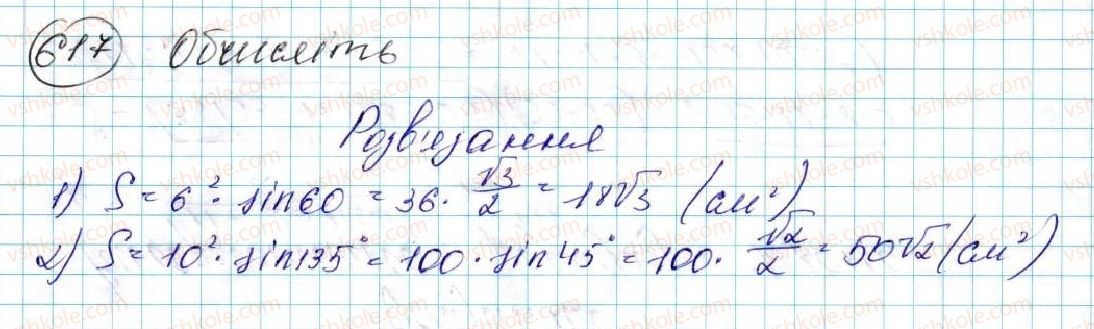 617 Обчисліть
Розв'язання
1) S = 6² · sin60 = 36 · √3/2 = 18√3 (см²)
2) S = 10² · sin135° = 100 · sin45° = 100 · √2/2 = 50√2 (см²)